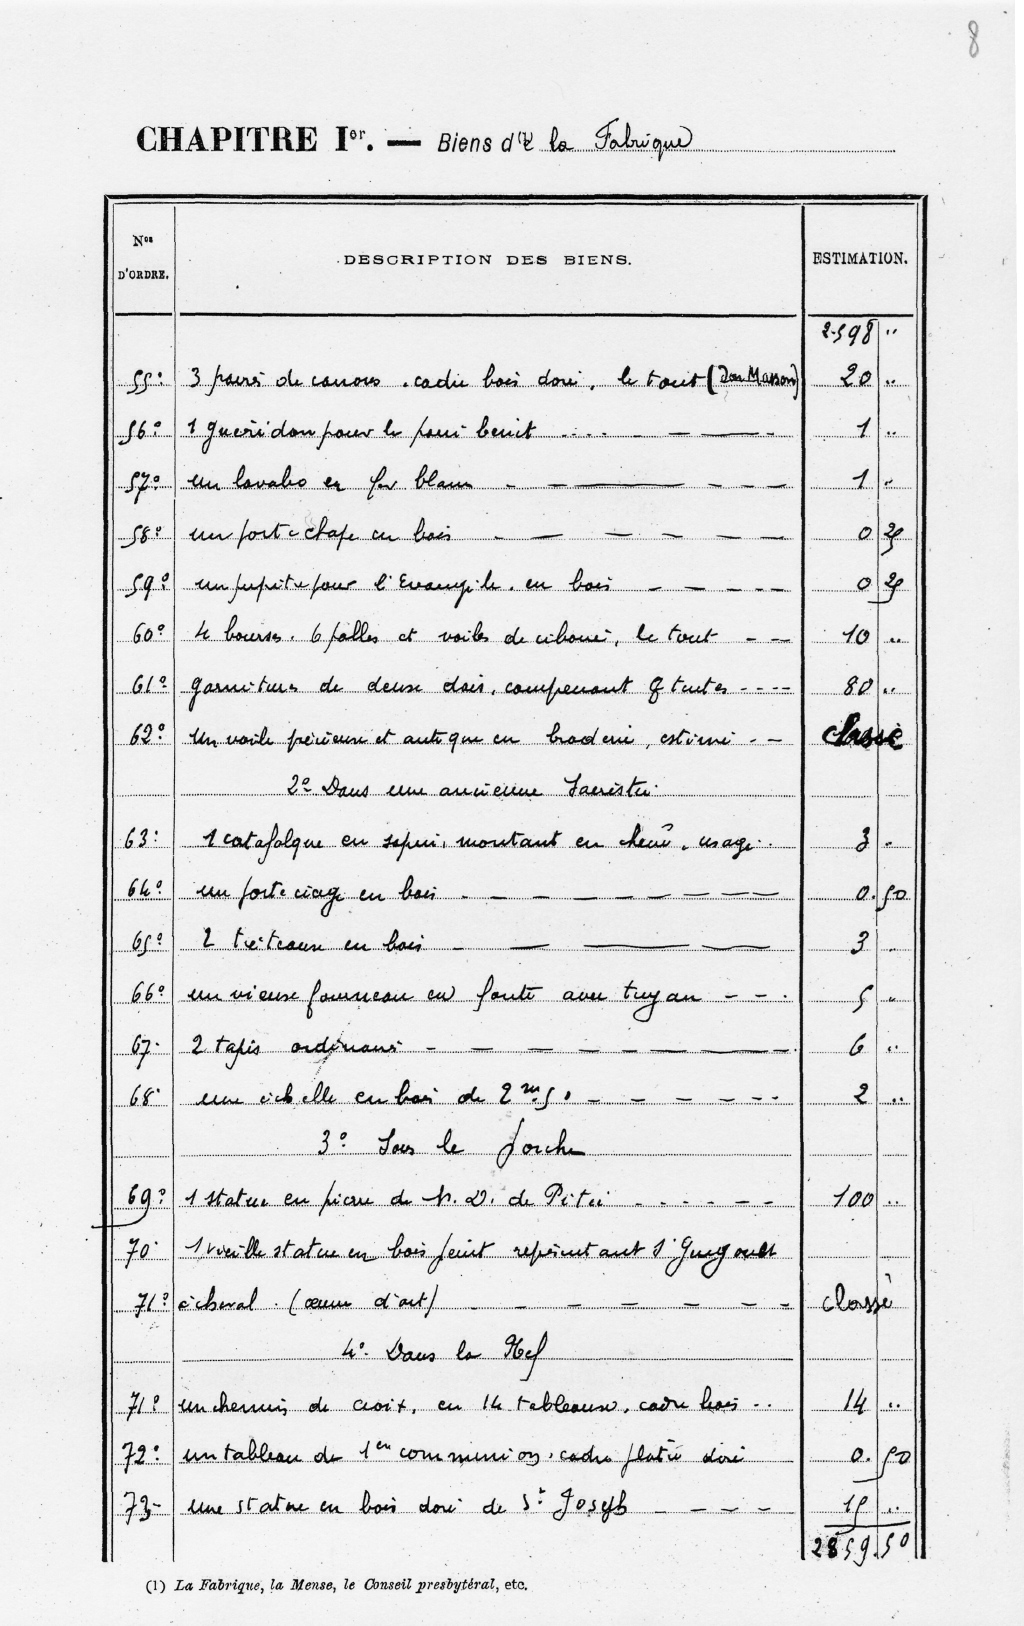 8
CHAPITRE Ier. — Biens de (1) la Fabrique
Nos D'ORDRE. DESCRIPTION DES BIENS. ESTIMATION.
2.598 "
55° 3 paires de canons, cadre bois doré, le tout (Don Masson) 20 "
56° 1 guéridon pour le pain benit 1 "
57° un lavabo en fer blanc 1 "
58° un porte chape en bois 0 25
59° un pupitre pour l'Evangile, en bois 0 25
60° 4 bourses, 6 palles et voiles de ciboire, le tout 10 "
61° garnitures de deux dais, comprenant 8 tentes 80 "
62° un voile précieux et antique en broderie, estimé classé
2° Dans une ancienne Sacristie
63° 1 catafalque en sapin, montant en chêne, usagé 3 "
64° un porte cierge en bois 0.50
65° 2 tréteaux en bois 3 "
66° un vieux fourneau en fonte avec tuyau 5 "
67 2 tapis ordinaires 6 "
68 une échelle en bois de 2m50 2 "
3° Sous le Porche
69° 1 statue en pierre de N. D. de Pitié 100 "
70 1 vieille statue en bois peint représentant St
71° à cheval (œuvre d'art) classé
4° Dans la Nef
71° un chemin de croix, en 14 tableaux, cadre bois 14 "
72° un tableau de 1ere communion, cadre plâtre doré 0.50
73 une statue en bois doré de St Joseph 15 "
2859.50
(1) La Fabrique, la Mense, le Conseil presbytéral, etc.